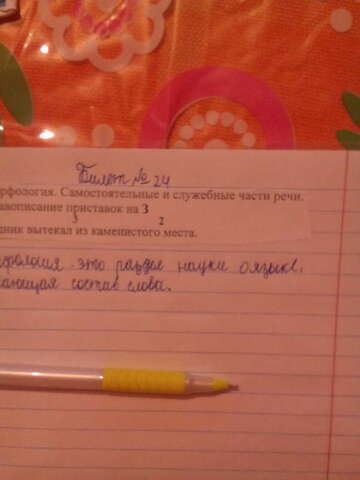 Билет № 24
рфология. Самостоятельные и служебные части речи.
авописание приставок на З
3 2
дник вытекал из каменистого места.
фология - это раздел науки о языке,
ающая состав слова.